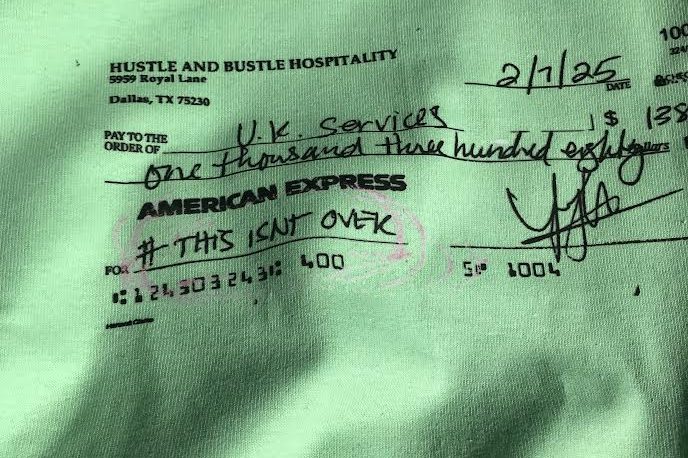 HUSTLE AND BUSTLE HOSPITALITY
5959 Royal Lane
Dallas, TX 75230
100
2/7/25
DATE
PAY TO THE
ORDER OF
U.K. Services
$ 138
one thousand three hundred eighty
Dollars
AMERICAN EXPRESS
FOR # THIS ISNT OVER